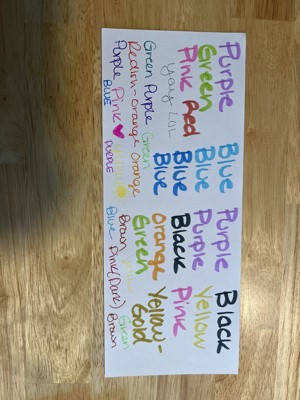 Purple Blue Purple Black
Green Blue Purple Yellow
Pink Red Blue Black Pink
yay LOL Blue Orange Yellow-
Green Purple Green Green Gold
Redish-orange Orange Brown Yellow
Purple Pink Yellow Blue - Pink(Dark) Green
BLUE PURPLE Brown